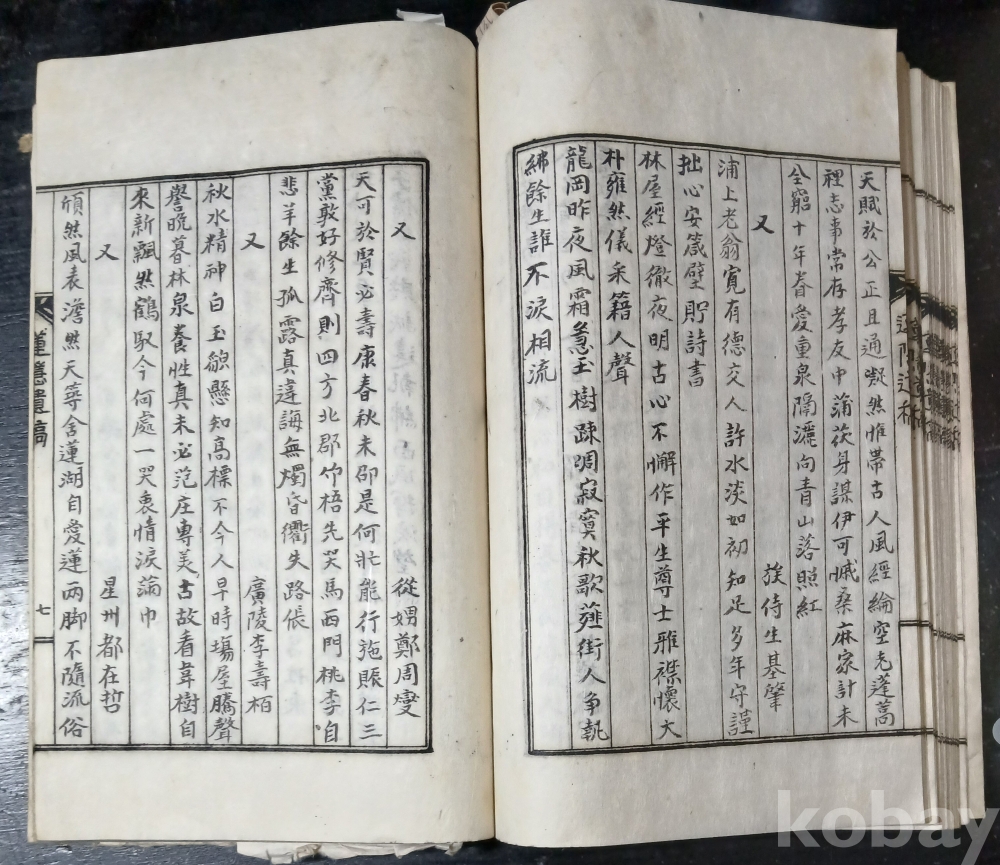 天賦於公正且通凝然惟帶古人風經綸空老蓬蒿
裡志事常存孝友中蒲茯身謀伊可慽桑麻家計未
全窮十年眷愛重泉隔灑向青山落照紅
又 族侍生基肇
浦上老翁寬有德交人許水淡如初知足多年守謹
拙心安箴壁貯詩書
林屋經燈徹夜明古心不懈作平生尊士雅襟懷大
朴雍然儀采籍人聲
龍岡昨夜風霜急玉樹踈凋寂寞秋歌薤街人爭執
紼餘生誰不淚相流
又 從甥鄭周燮
天可於賢必壽康春秋未卲是何戕能行施賑仁三
黨敦好修齊則四方北郡竹梧先哭馬西門桃李自
悲羊餘生孤露真違誨無燭昏衢失路倀
又 廣陵李壽栢
秋水精神白玉毓懸知高標不今人早時塲屋騰聲
譽晩暮林泉養性真未必范庄專美古故看韋樹自
來新飄然鶴馭今何處一哭衷情淚滿巾
又 星州都在哲
頎然風表澹然天等舍蓮湖自愛蓮兩脚不隨流俗
遺稿
七
kobay